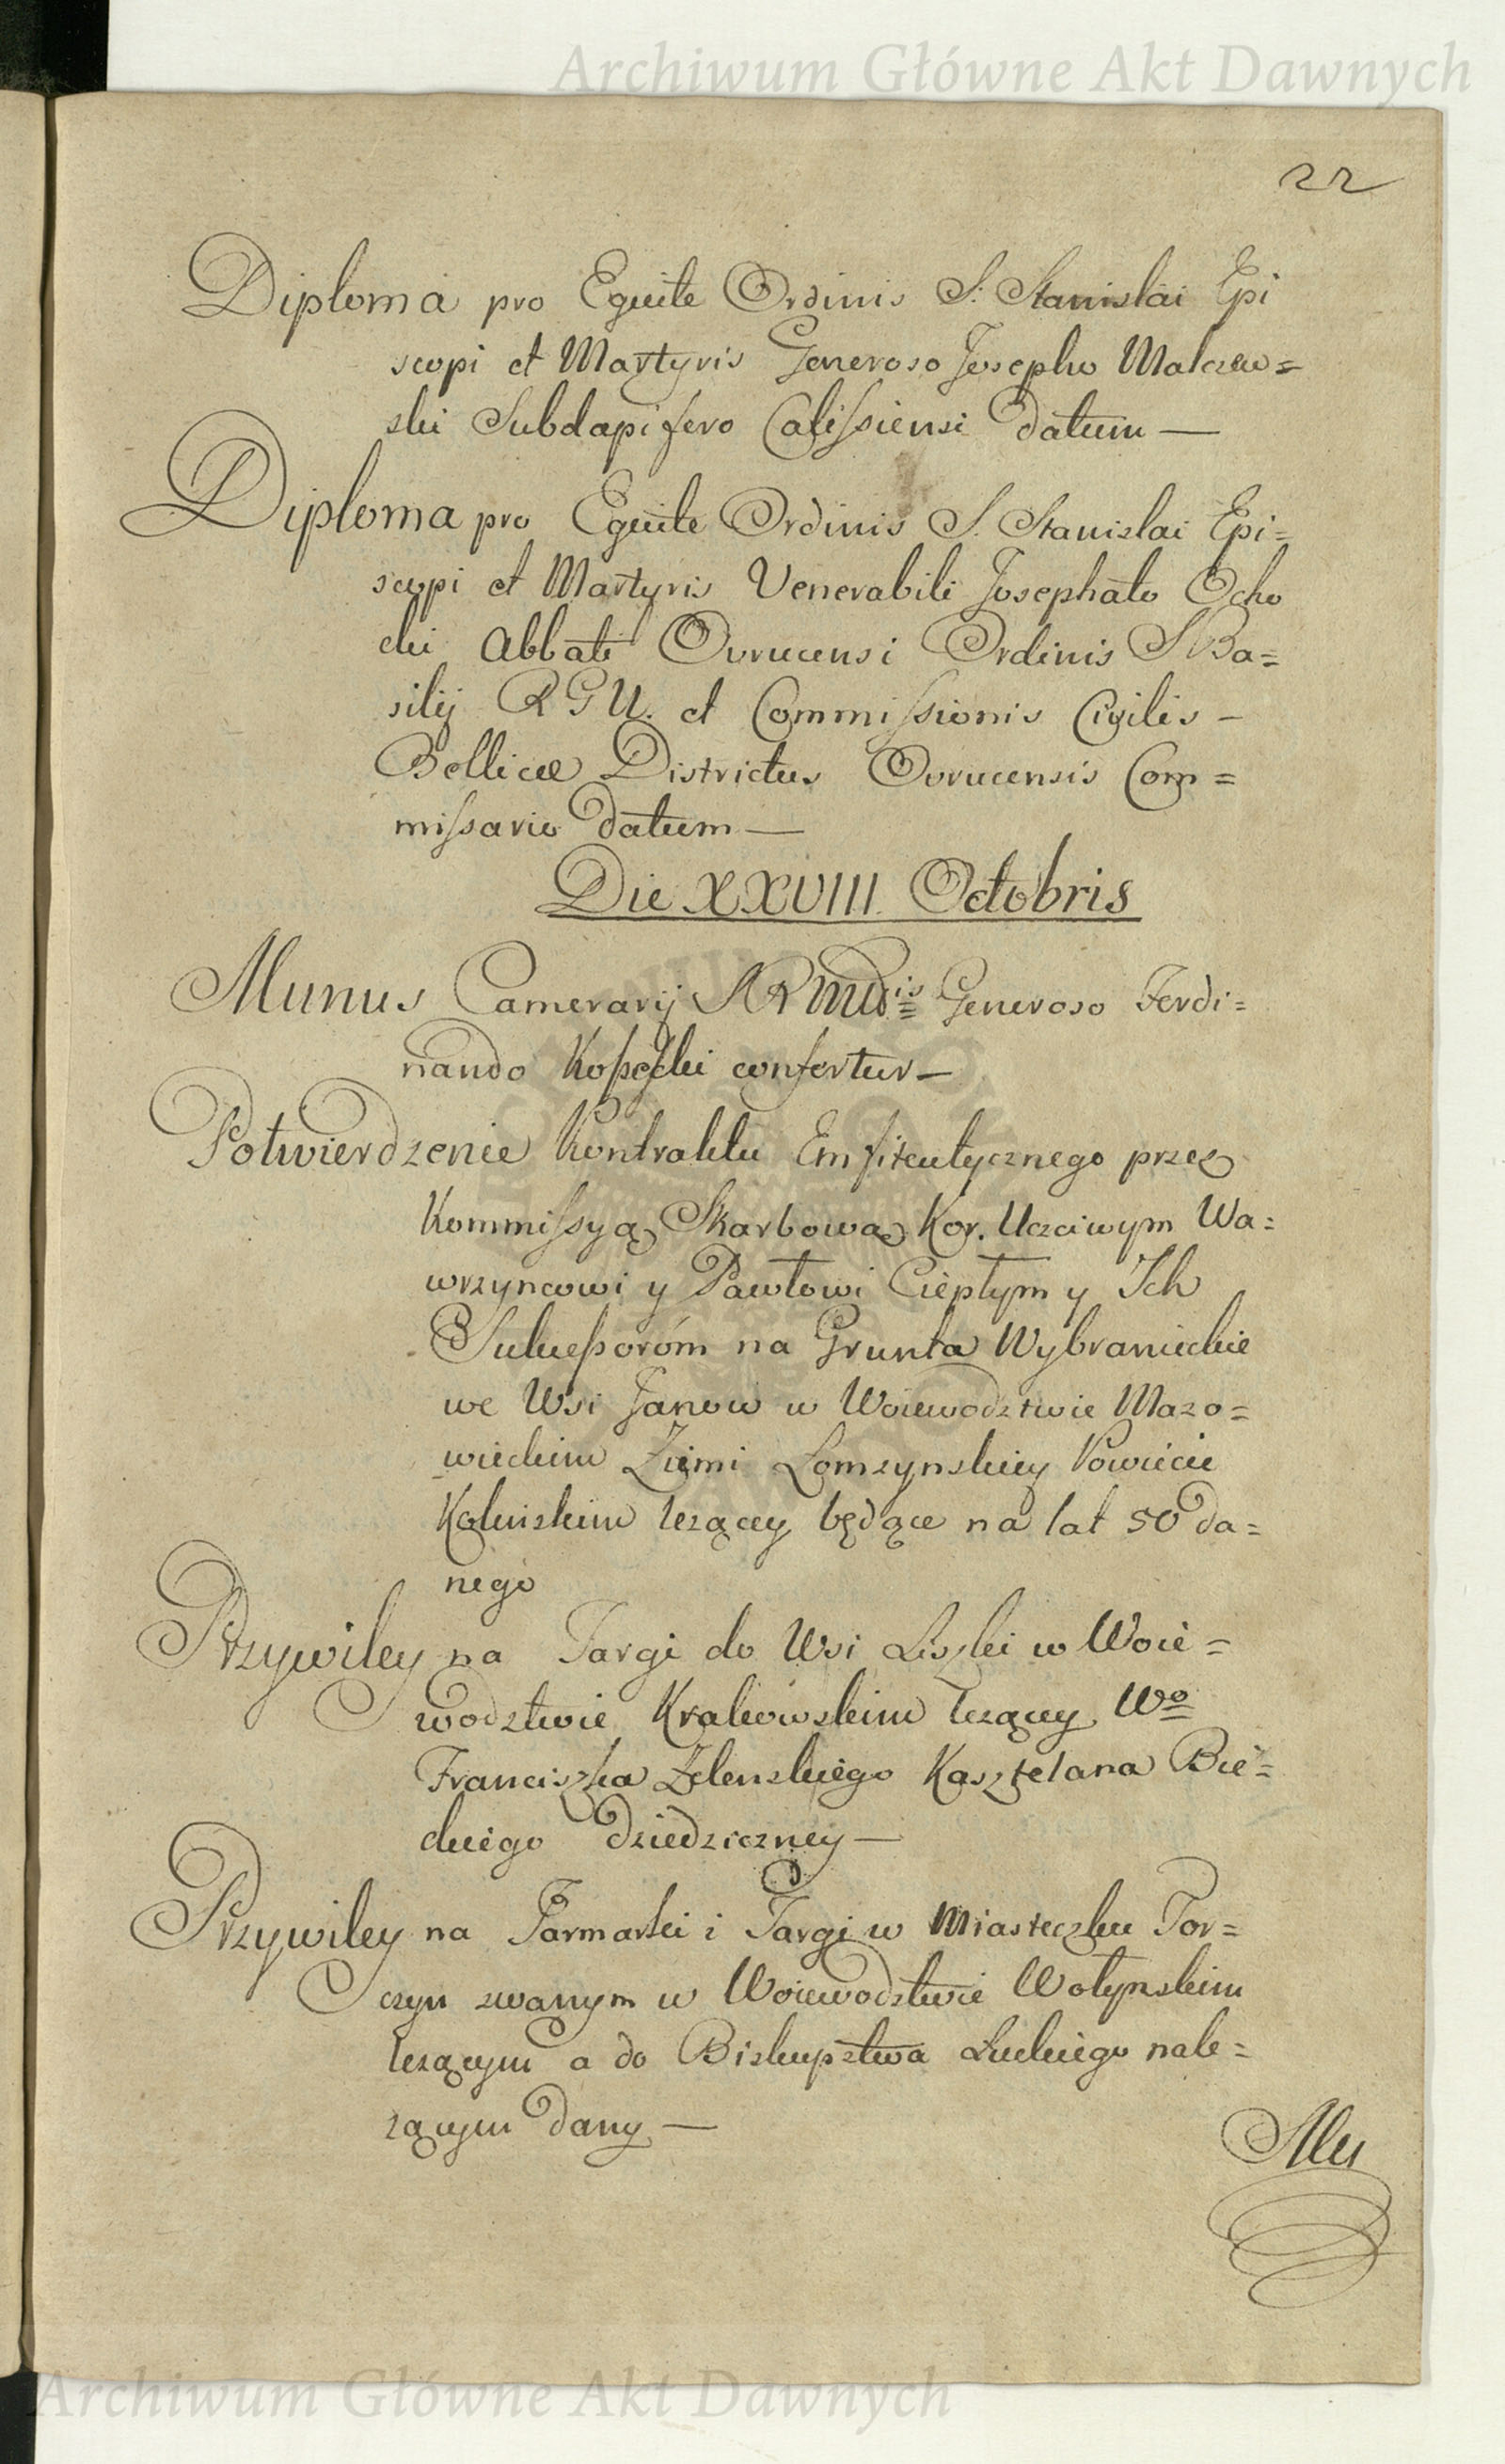 Archiwum Główne Akt Dawnych
22
Diploma pro Equite Ordinis S. Stanislai Epi
scopi et Martyris Generoso Josepho Malczew=
ski Subdapifero Calissiensi datum —
Diploma pro Equite Ordinis S. Stanislai Epi=
scopi et Martyris Venerabili Josephato Ocho
cki Abbati Ovrucensi Ordinis S Ba=
silij R G U. et Commissionis Civilis –
Bellicæ Districtus Ovrucensis Com=
missario datum —
Die XXVIII. Octobris
Munus Camerarij SRMttis Generoso Ferdi=
nando confertur —
Potwierdzenie Kontraktu Emfiteutycznego przez
Kommissyą Skarbową Kor. Uczciwym Wa=
wrzyncowi y Pawłowi Ciepłym y Ich
Sukcessoróm na Grunta Wybranieckie
we Wsi Janow w Woiewodztwie Mazo=
wieckim Ziemi Łomzynskiey Powiecie
Kolnskim leżącey będące na lat 50 da=
nego
Przywiley na Targi do Wsi Liszki w Woie=
wodztwie Krakowskim leżącey Wo
Franciszka Zelenskiego Kasztelana Bie=
ckiego dziedziczney —
Przywiley na Jarmarki i Targi w Miasteczku Tor=
czyn zwanym w Woiewodztwie Wołynskim
leżącym a do Biskupstwa Łuckiego nale=
żącym dany —
Archiwum Główne Akt Dawnych